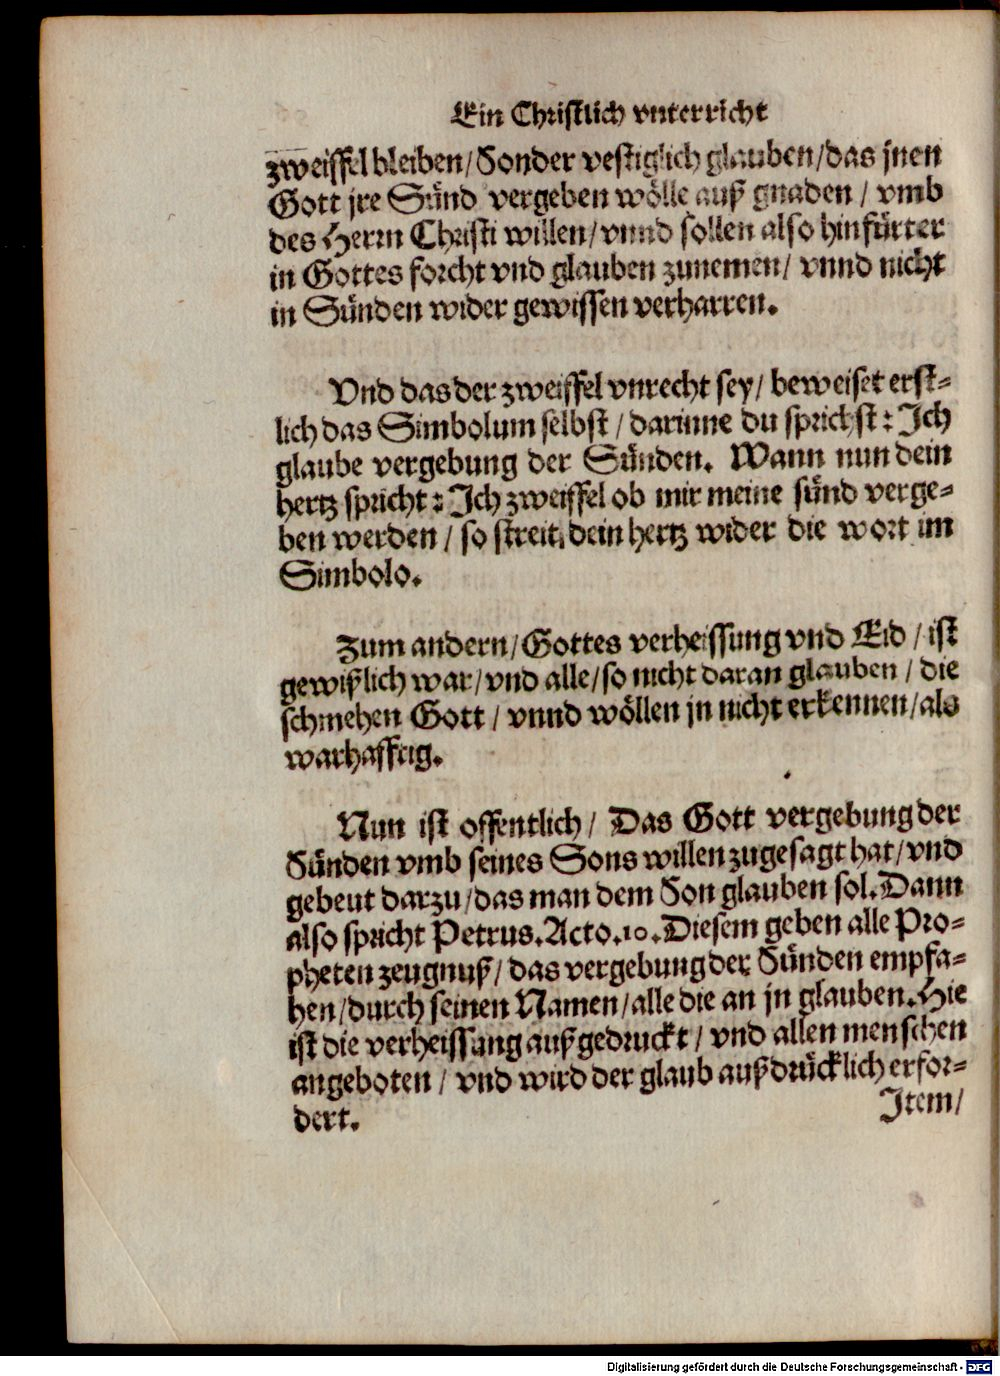 Ein Christlich vnterricht
zweiffel bleiben/Sonder vestiglich glauben/das jnen
Gott jre Sünd vergeben wölle auß gnaden / vmb
des Herrn Christi willen/vnnd sollen also hinfürter
in Gottes forcht vnd glauben zunemen/ vnnd nicht
in Sünden wider gewissen verharren.
Vnd das der zweiffel vnrecht sey/ beweiset erst-
lich das Simbolum selbst / darinne du sprichst: Ich
glaube vergebung der Sünden. Wann nun dein
hertz spricht: Ich zweiffel ob mir meine sünd verge-
ben werden / so streit, dein hertz wider die wort im
Simbolo.
Zum andern/Gottes verheissung vnd Eid / ist
gewißlich war/vnd alle/so nicht daran glauben / die
schmehen Gott / vnnd wöllen jn nicht erkennen/als
warhafftig.
Nun ist offentlich/ Das Gott vergebung der
Sünden vmb seines Sons willen zugesagt hat/vnd
gebeut darzu/das man dem Son glauben sol. Dann
also spricht Petrus. Acto. 10. Diesem geben alle Pro-
pheten zeugnuß/das vergebung der Sünden empfa-
hen/durch seinen Namen/alle die an jn glauben. Hie
ist die verheissung außgedruckt/ vnd allen menschen
angeboten / vnd wird der glaub außdrücklich erfor-
dert.
Item/
Digitalisierung gefördert durch die Deutsche Forschungsgemeinschaft - DFG